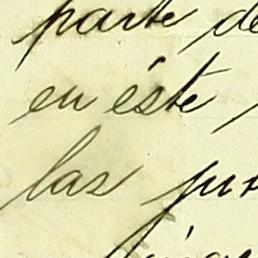 parte de
en éste
las